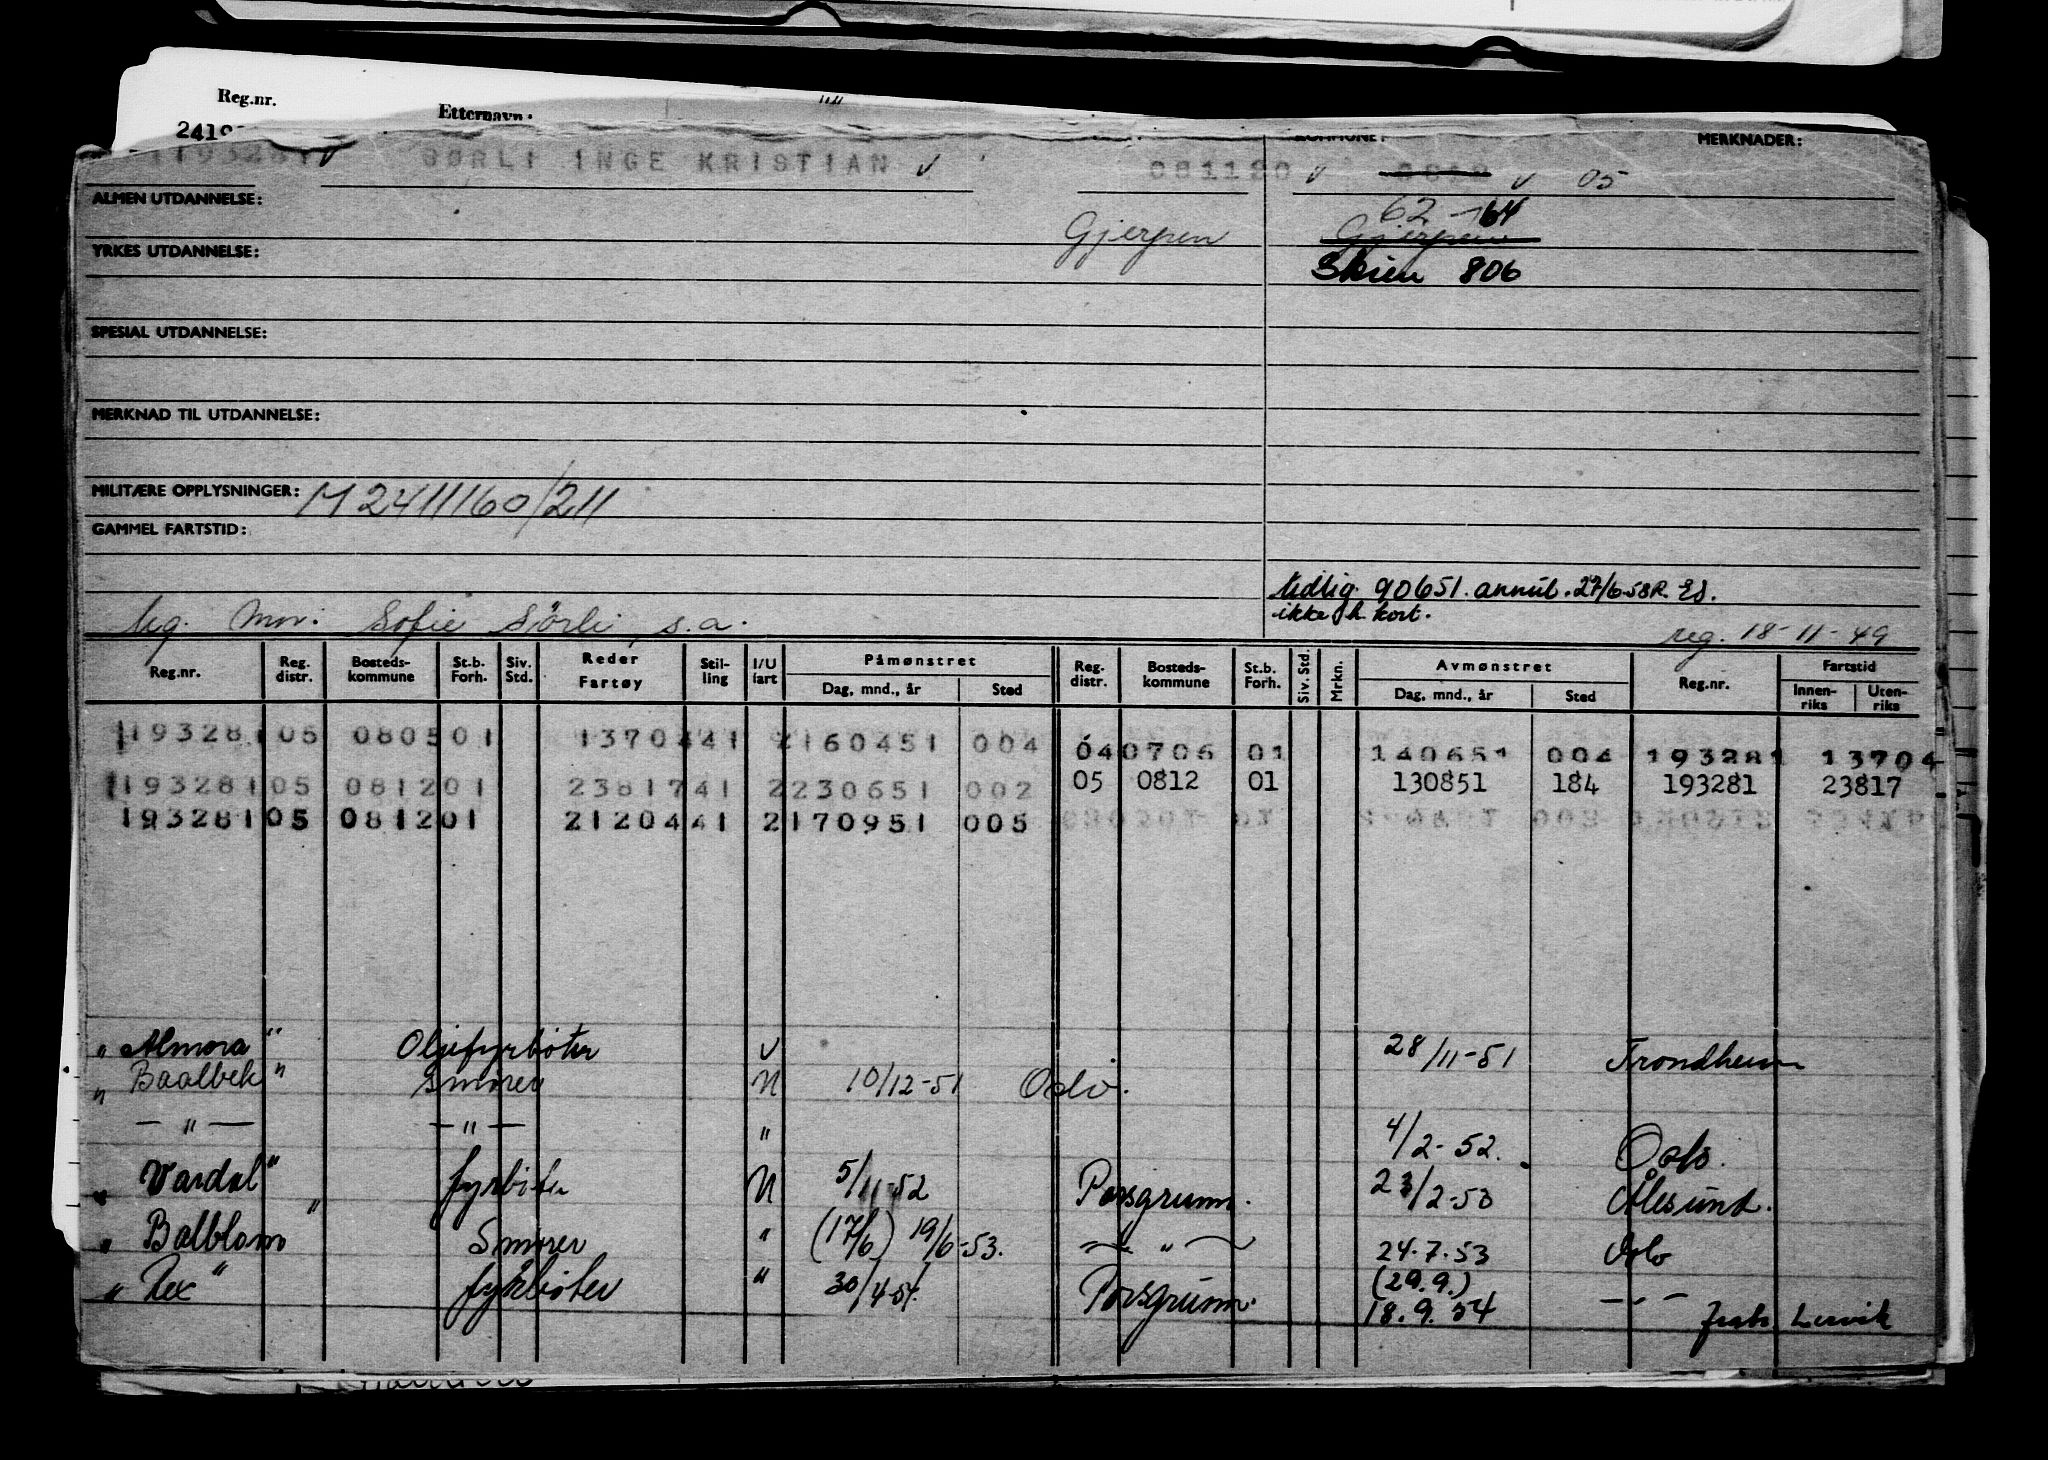 Reg.nr.
Etternavn:
MERKNADER:
193281 SØRLI INGE KRISTIAN 081120 0812 05
ALMEN UTDANNELSE:
62-64
Gjerpen Gjerpen
YRKES UTDANNELSE:
Skien 806
SPESIAL UTDANNELSE:
MERKNAD TIL UTDANNELSE:
MILITÆRE OPPLYSNINGER: M2411160/211
GAMMEL FARTSTID:
Utdlig. 90651. annul. 27/6-58 R. ES.
ikke h. kort.
Ug. Mor: Sofie Sørli, s.a. reg. 18-11-49
Reg.nr. Reg. distr. Bosteds-kommune St.b. Forh. Siv. Std. Reder Fartøy Stil-ling I/U fart Påmønstret Dag, mnd., år Sted Reg. distr. Bosteds-kommune St.b. Forh. Siv. Std. Mrkn. Avmønstret Dag, mnd., år Sted Reg.nr. Fartstid Innen-riks Uten-riks
193281 05 080501 1370441 2160451 004 040706 01 140651 004 193281 13704
193281 05 081201 2381741 2230651 002 05 0812 01 130851 184 193281 23817
193281 05 081201 2120441 2170951 005
"Almora" Oljefyrbøter U 28/11-51 Trondheim
"Baalbek" Smører U 10/12-51 Oslo.
— " — — " — " 4/2-52. Oslo.
"Vardal" fyrbøter U 5/11-52 Porsgrunn. 23/2-53 Ålesund.
"Balblom" Smører " (17/6) 19/6-53. — " — 24.7.53 Oslo
"Rex" fyrbøter " 30/4-54. Porsgrunn. (29.9.) 18.9.54 — " — Lervik